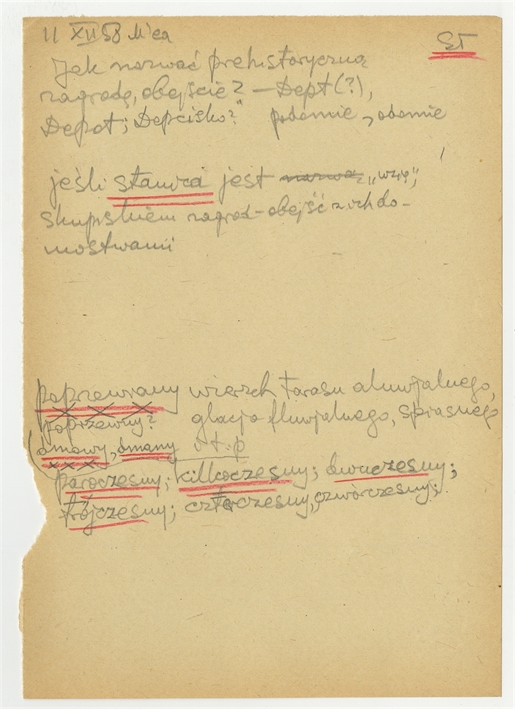 11 XII 58 M'ca
ST
Jak nazwać prehistoryczną
zagrodę, obejście? – Dept (?),
Depot; Depcisko?" podomie, odomie
jeśli stanica jest nazwą „wsią",
skupskiem zagród – obejść z ich do-
mostwami
poprzewiany wierzch tarasu aluwjalnego,
poprzewny? glacjo fluwjalnego, spiasneg
(omowy, omany i t. p
paroczesny; kilkoczesny; dwuczesny;
trójczesny; czteroczesny, czwórczesny;